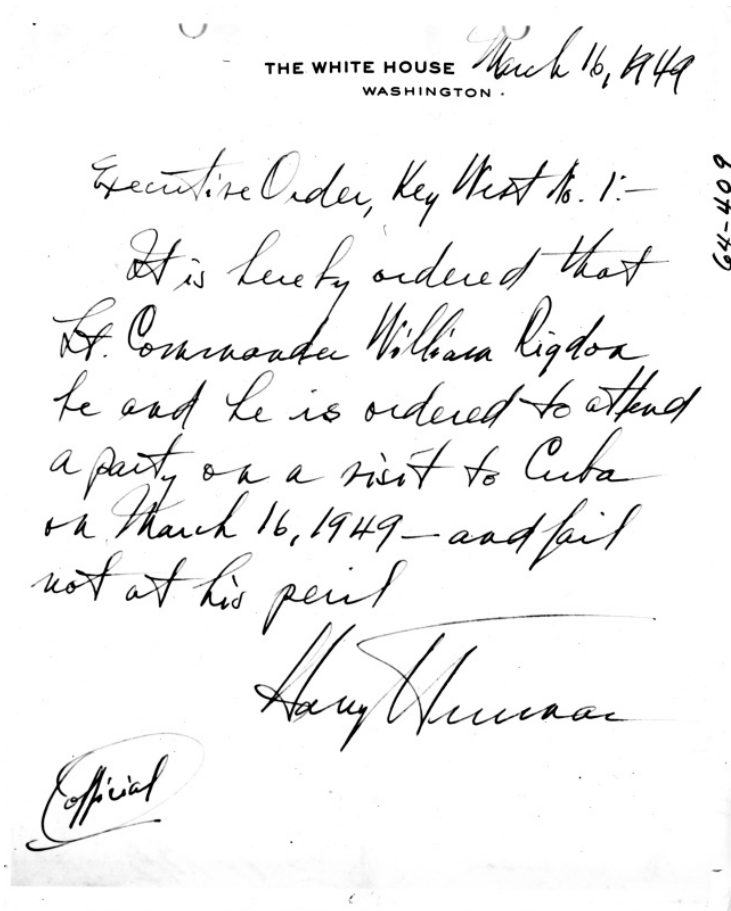 THE WHITE HOUSE March 16, 1949
WASHINGTON
64-409
Executive Order, Key West No. 1:-
It is hereby ordered that
Lt. Commander William Rigdon
be and he is ordered to attend
a party on a visit to Cuba
on March 16, 1949 — and fail
not at his peril
Harry Truman
Official